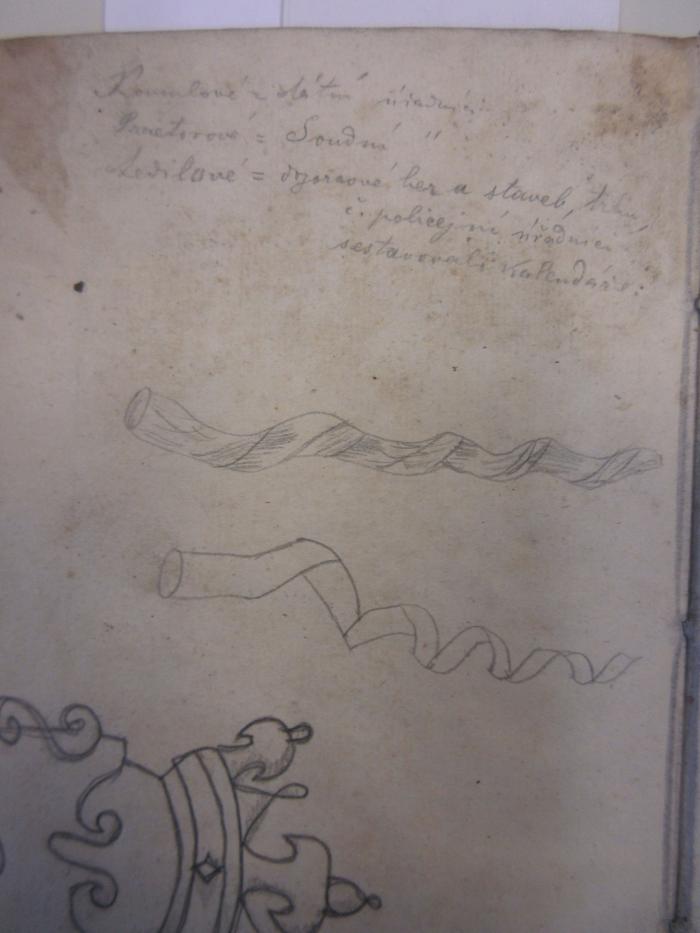 Konsulové = státní úředníci
Praetorové = Soudní "
Aedilové = dozorcové her a staveb, trhů,
č. policejní úředníci
sestavovali Kalendáře.